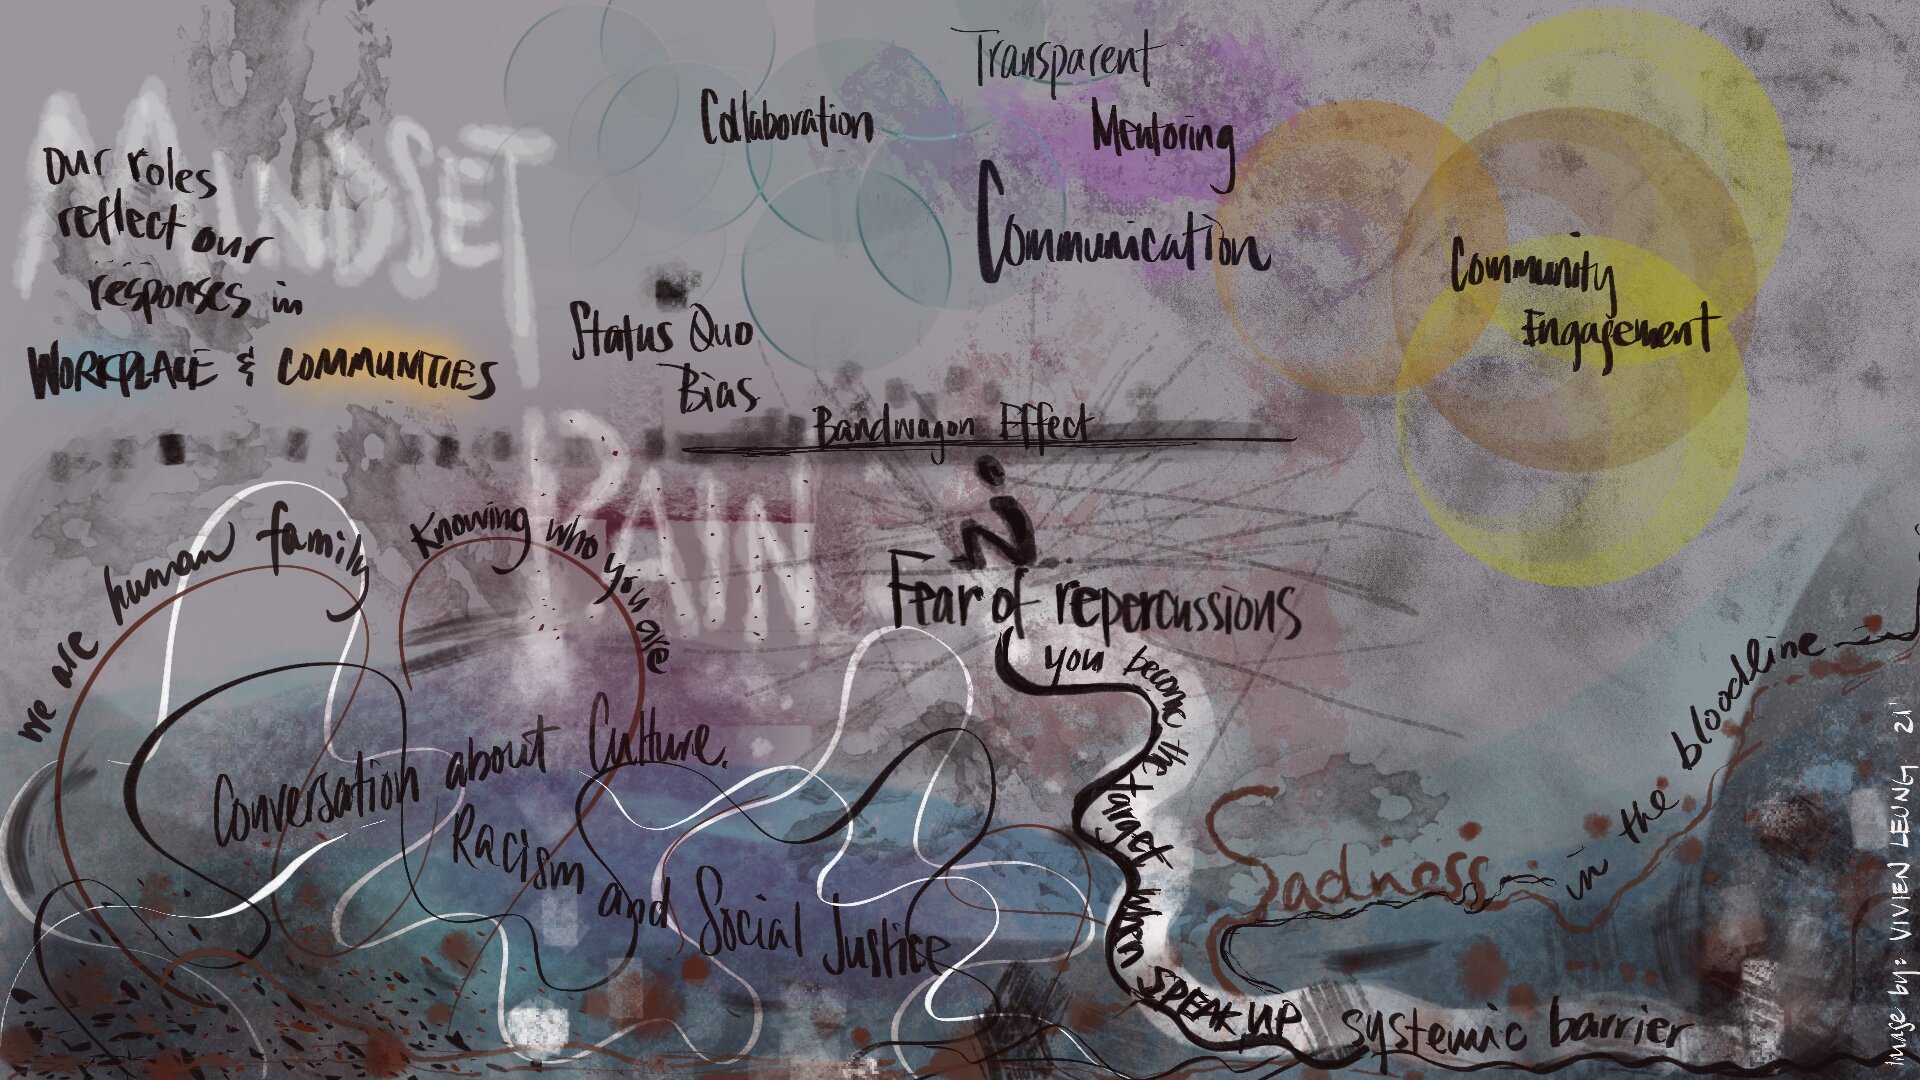 MINDSET
Our roles
reflect our
responses in
WORKPLACE & COMMUNITIES
Collaboration
Transparent
Mentoring
Communication
Community
Engagement
Status Quo
Bias
Bandwagon Effect
PAIN
we are human family
Knowing who you are
Fear of repercussions
you become the target when SPEAK UP
systemic barrier
Conversation about Culture,
Racism and Social Justice
Sadness in the bloodline
Image by: VIVIEN LEUNG 21'